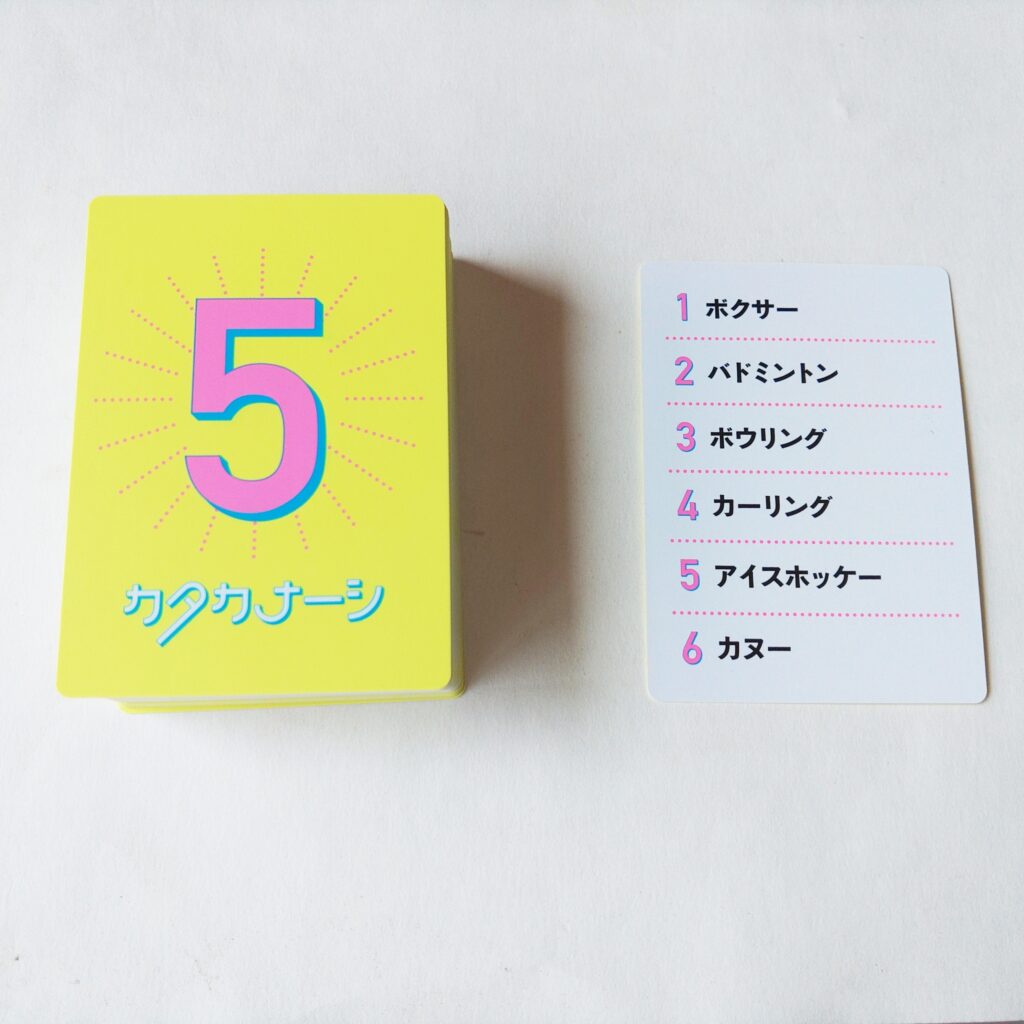 5
カタカナーシ
1 ボクサー
2 バドミントン
3 ボウリング
4 カーリング
5 アイスホッケー
6 カヌー